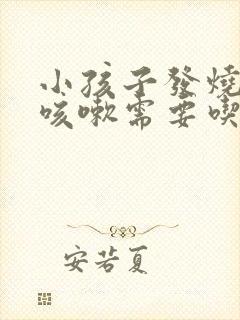 小孩子發燒
咳嗽需要喫
安若夏